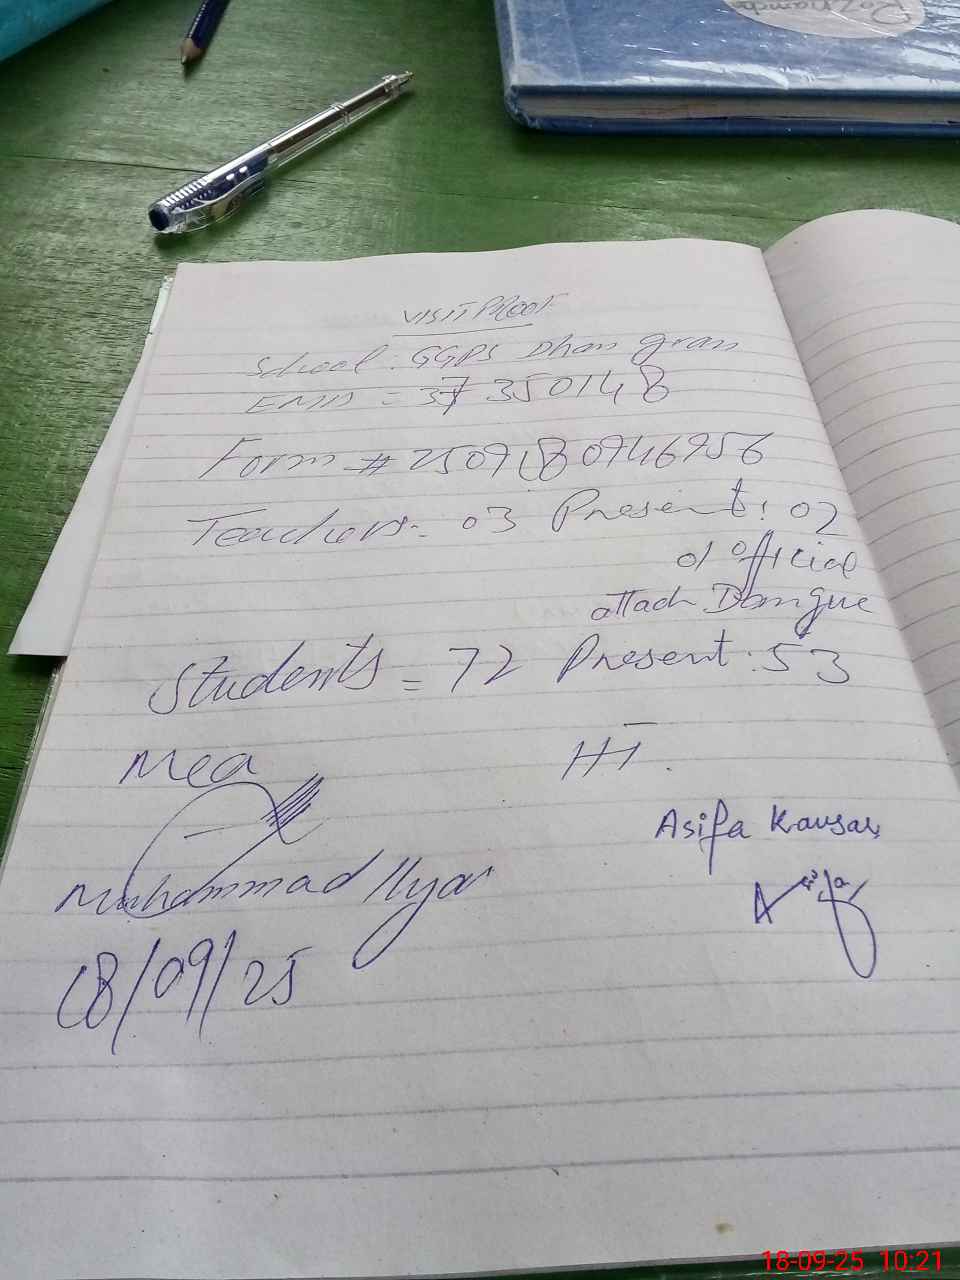 Roznamcha
VISIT PROOF
School: GGPS Dhan gran
EMIS = 37350148
Form # 2509180946956
Teachers = 03 Present: 02
01 official
attach Dangue
Students = 72 Present: 53
Mea
HT.
Asifa Kausar
Muhammad Ilyas
Asifa
18/09/25
18-09-25 10:21